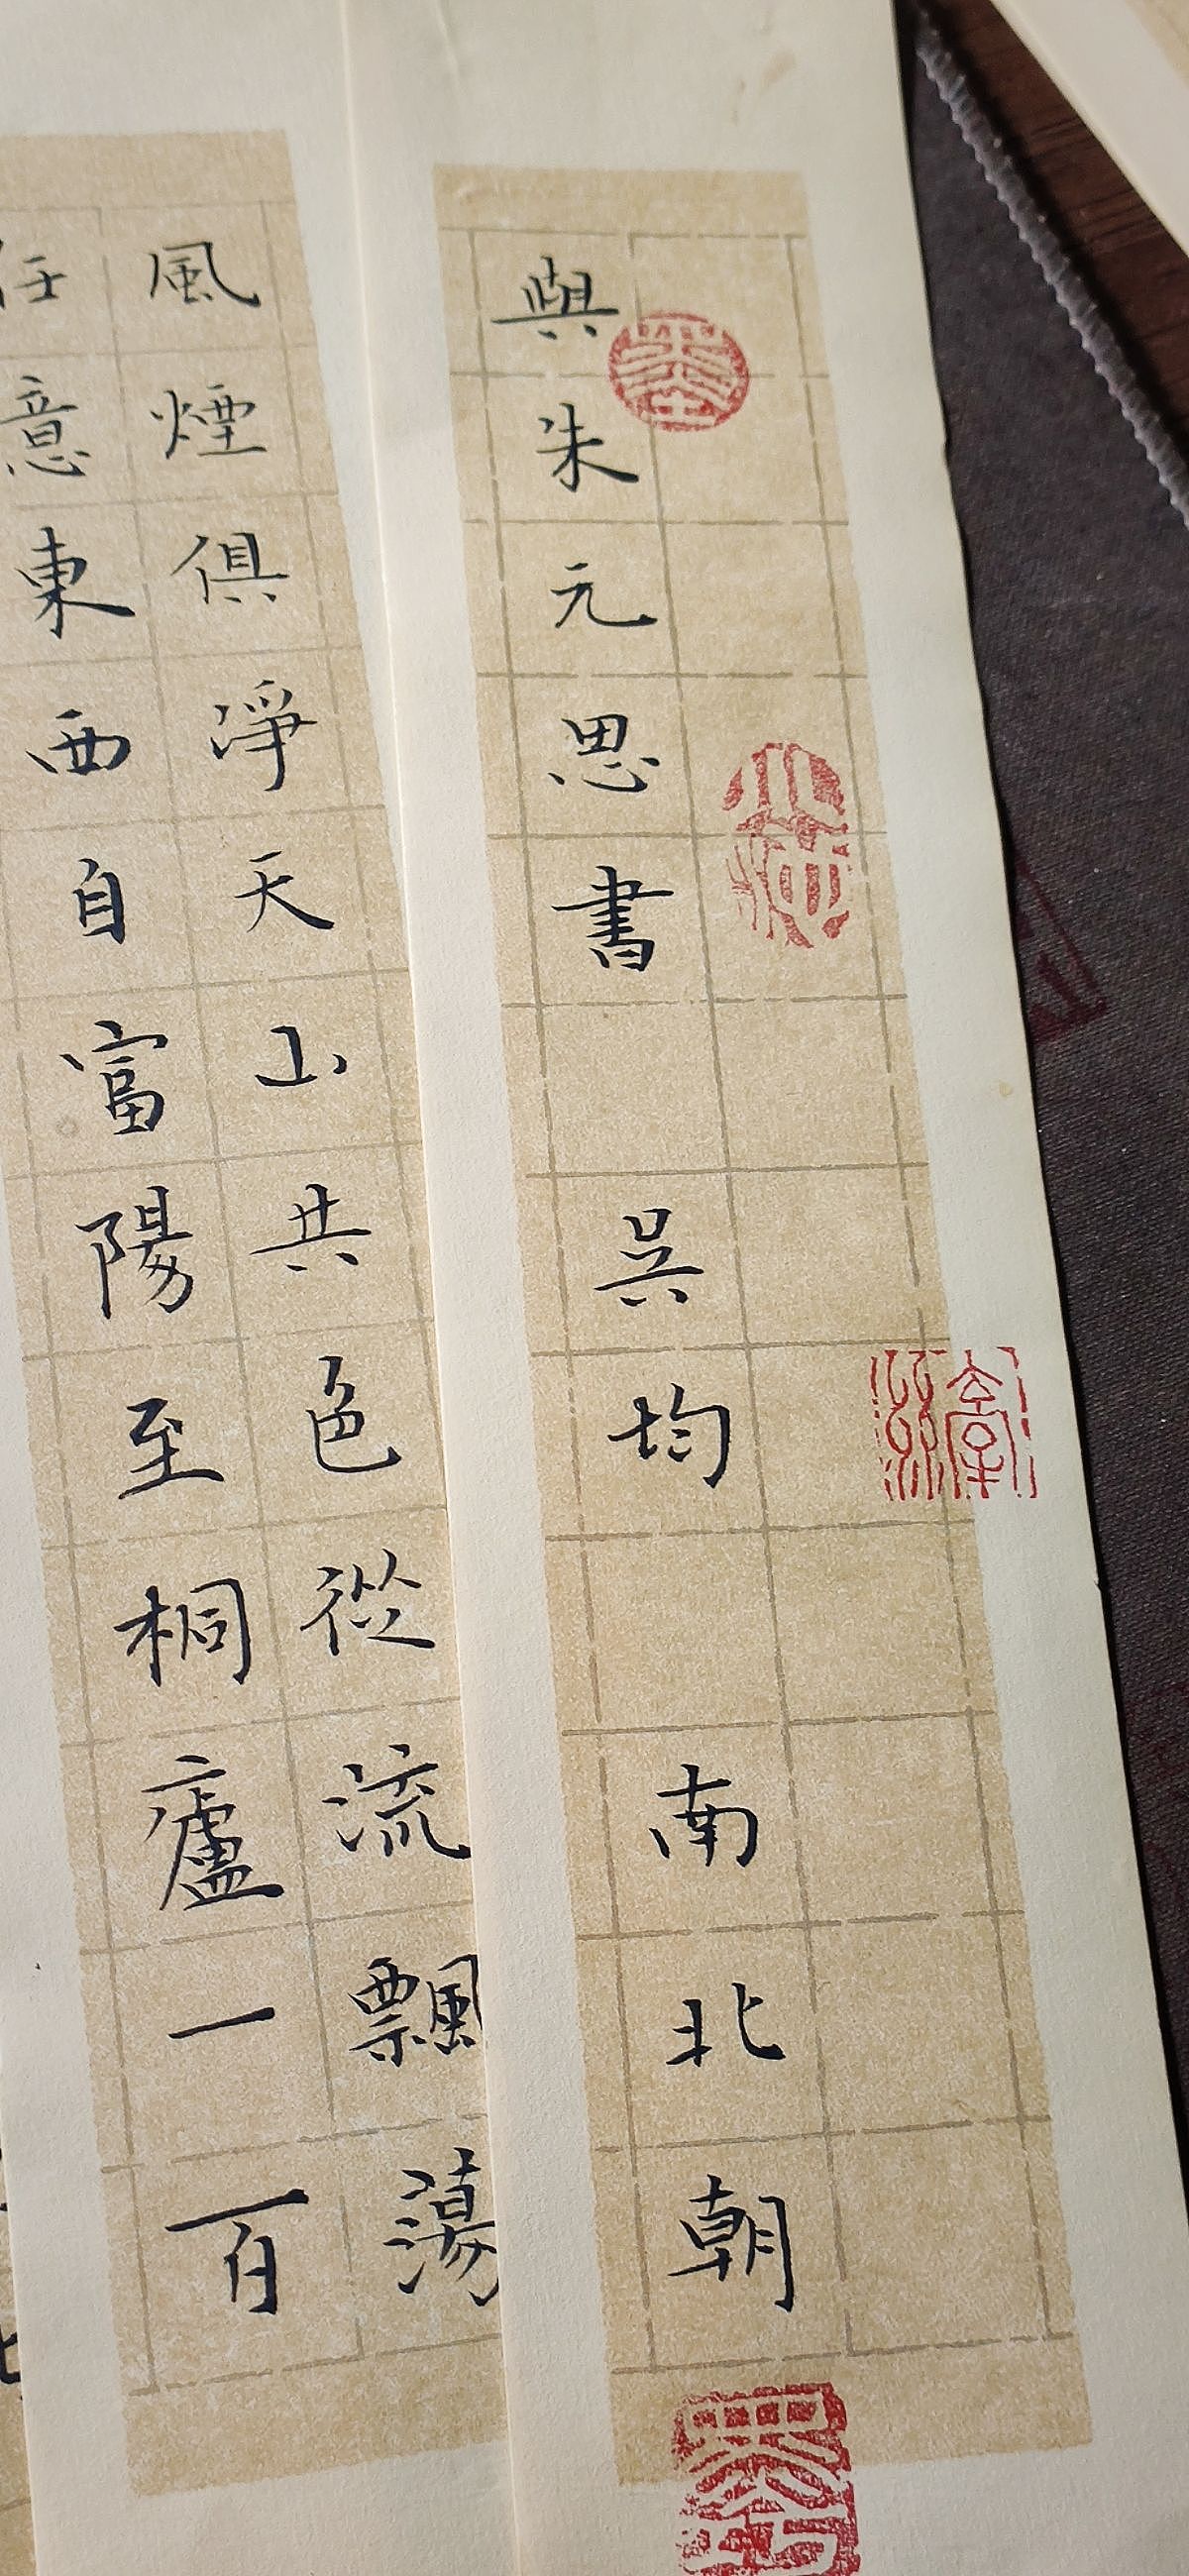 與朱元思書 吳均 南北朝
風煙俱淨天山共色從流飄蕩
任意東西自富陽至桐廬一百